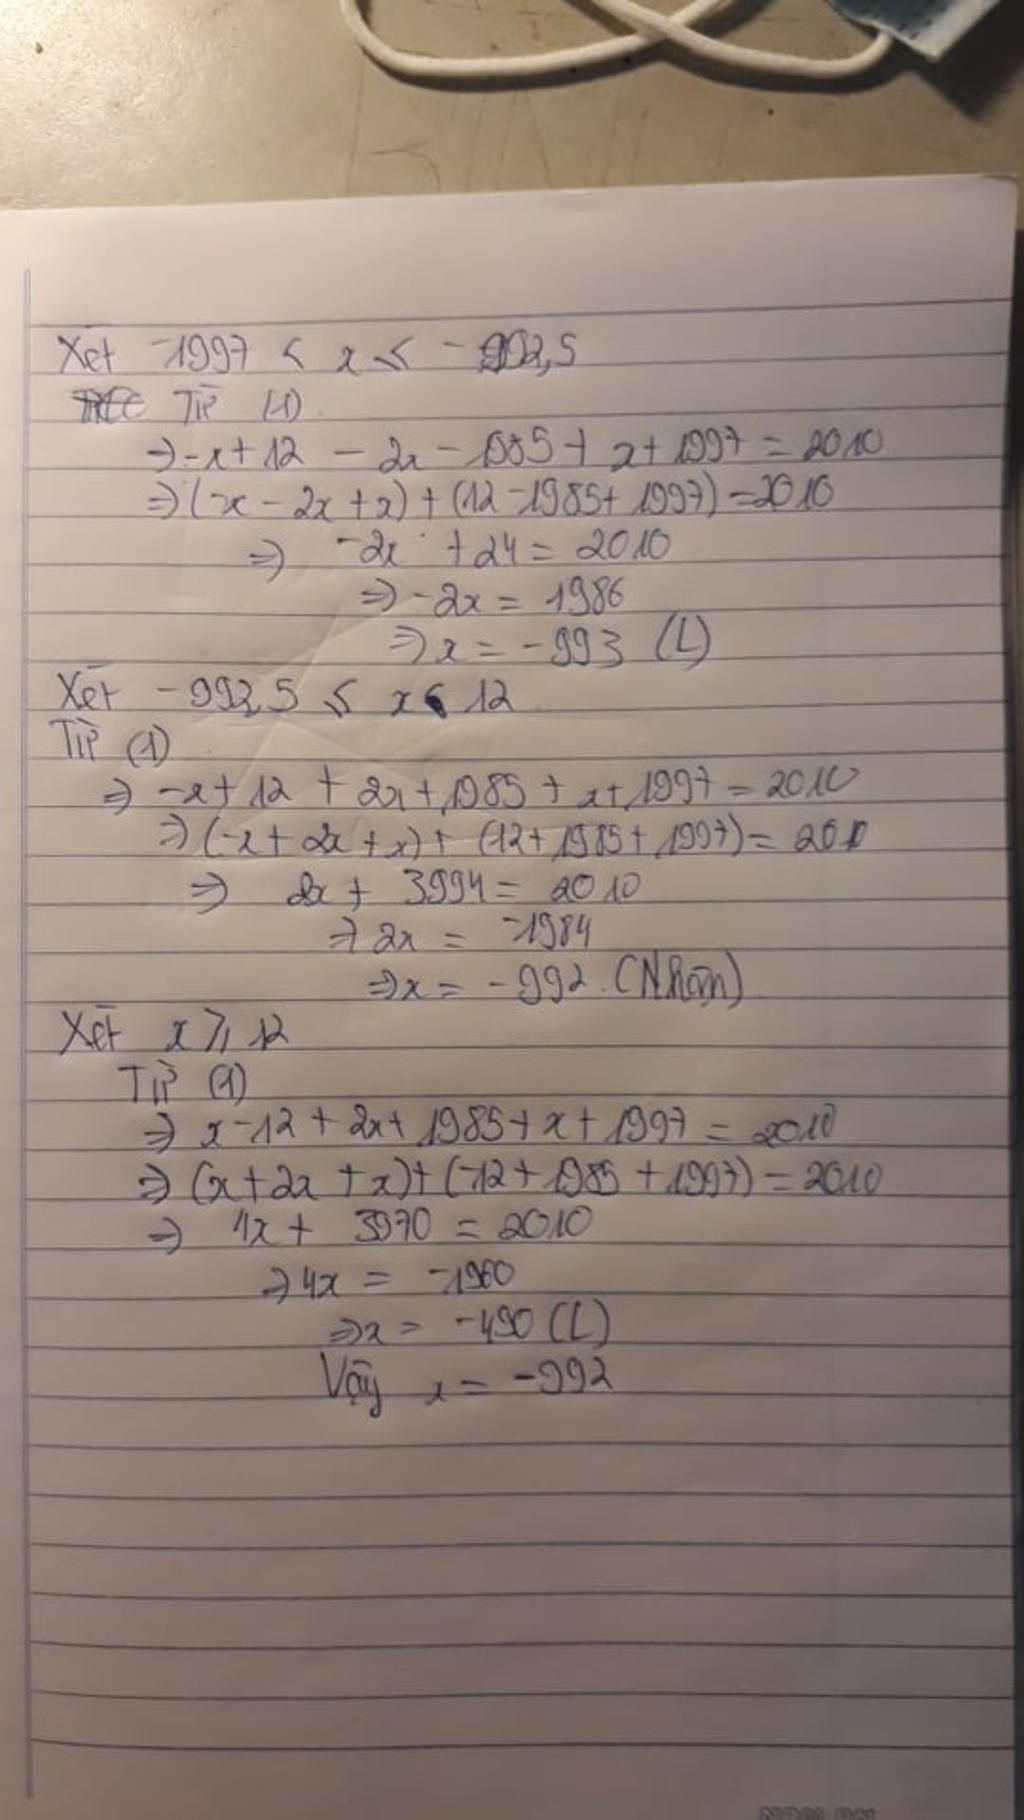 Xét -1997 < x < -992,5
Từ (1)
⇒ -x + 12 - 2x - 1985 + x + 1997 = 2010
⇒ (-x - 2x + x) + (12 - 1985 + 1997) = 2010
⇒ -2x + 24 = 2010
⇒ -2x = 1986
⇒ x = -993 (L)
Xét -992,5 ≤ x < 12
Từ (1)
⇒ -x + 12 + 2x + 1985 + x + 1997 = 2010
⇒ (-x + 2x + x) + (12 + 1985 + 1997) = 2010
⇒ 2x + 3994 = 2010
⇒ 2x = -1984
⇒ x = -992. (Nhận)
Xét x ⩾ 12
Từ (1)
⇒ x - 12 + 2x + 1985 + x + 1997 = 2010
⇒ (x + 2x + x) + (-12 + 1985 + 1997) = 2010
⇒ 4x + 3970 = 2010
⇒ 4x = -1960
⇒ x = -490 (L)
Vậy x = -992